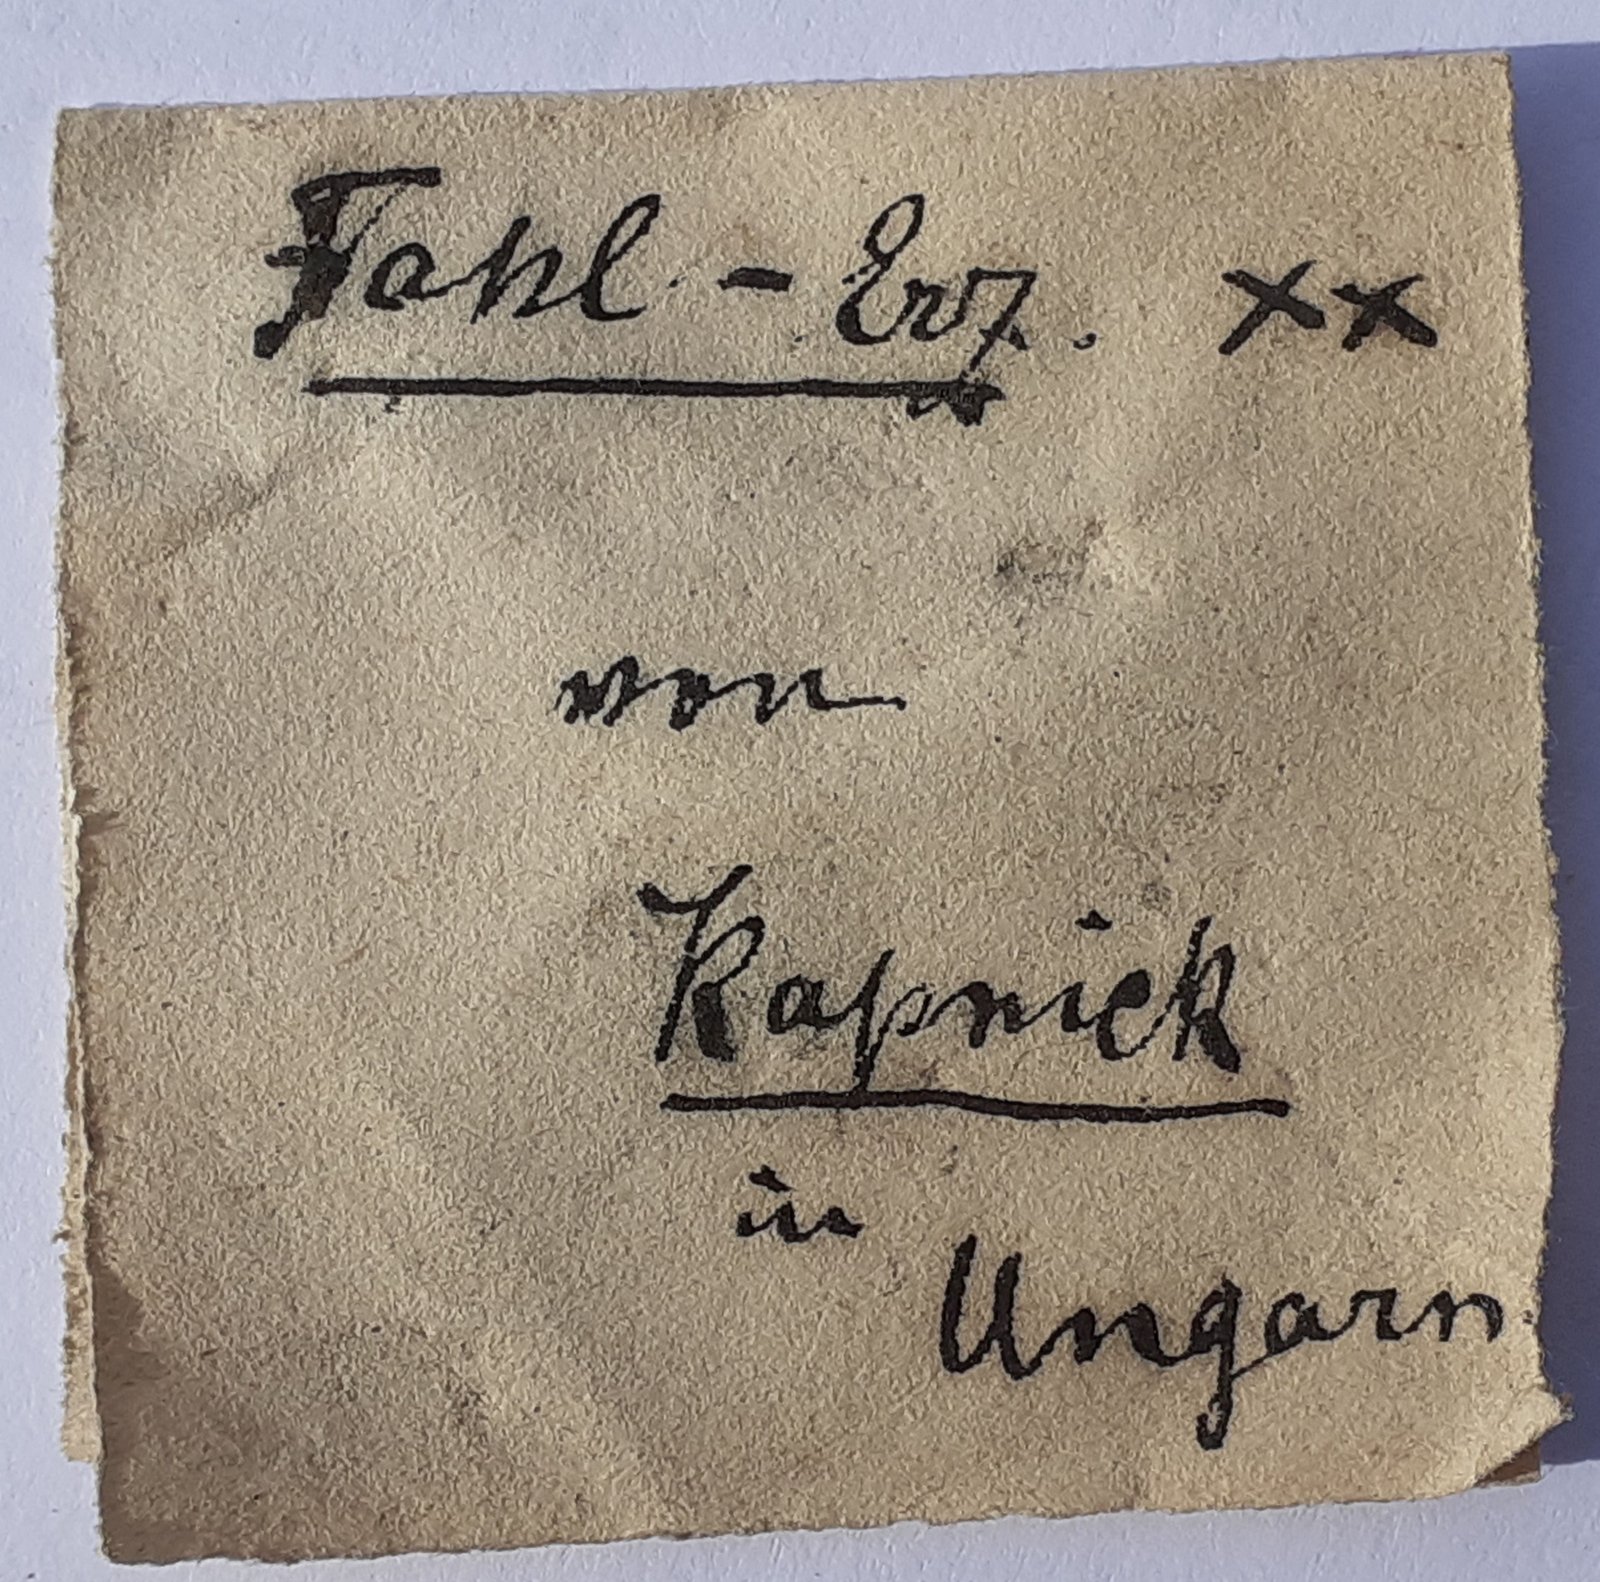 Fahl - Erz. xx
von
Kapnick
in
Ungarn.